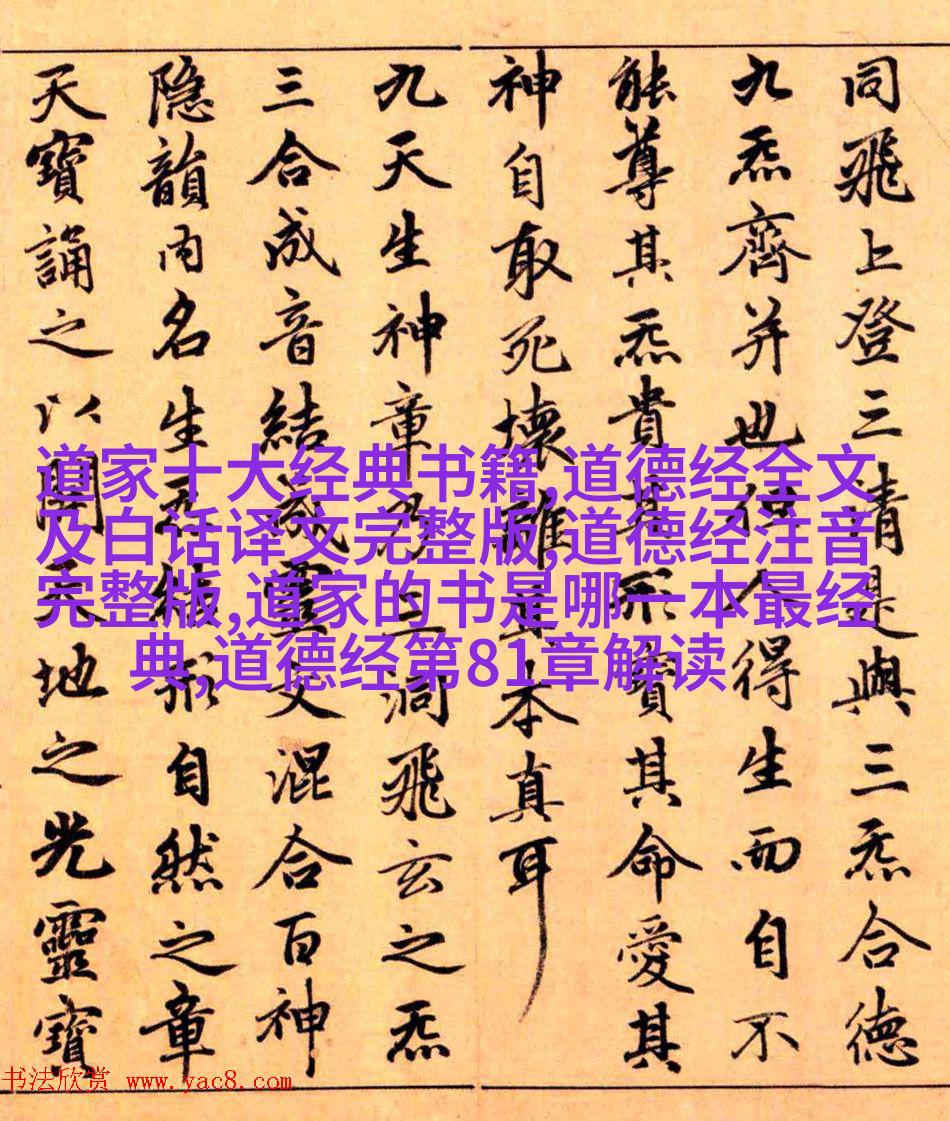 同飛上登三清是與三炁合德
九炁齊并也但人得生而自不
能尊其炁貴其形寶其命愛其
神自取死壞離其本真耳
九天生神章乃三洞飛玄之炁
三合成音結成靈文混合百神
隱韻內名生炁結形自然之章
天寶誦之以開天地之光靈寶
道家十大经典书籍,道德经全文
及白话译文完整版,道德经注音
完整版,道家的书是哪一本最经
典,道德经第81章解读
书法欣赏 www.yac8.com